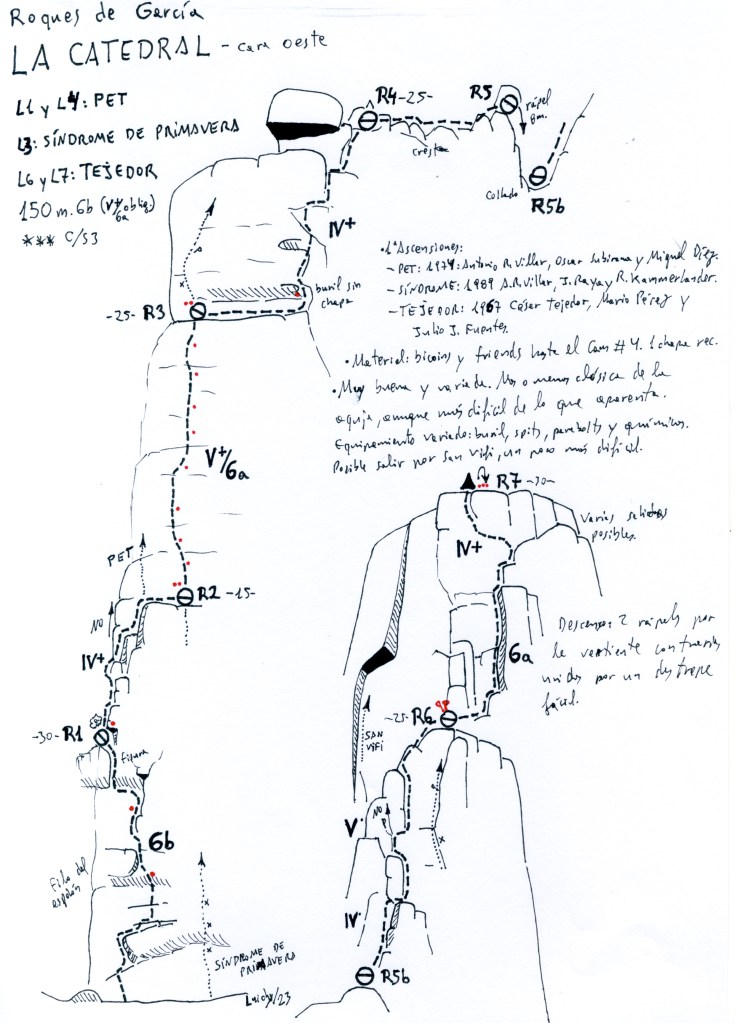 Roques de García
LA CATEDRAL - cara oeste
L1 y L4: PET
L3: SÍNDROME DE PRIMAVERA
L6 y L7: TEJEDOR
150 m. 6b (V+/6a oblig.)
*** C/S3
R4 -25-
R5
rápel 8m.
cresta
Collado
R5b
IV+
buril sin chapa
-25- R3
• 1ª Ascensiones:
- PET: 1974: Antonio R. Villar, Oscar Subirana y Miguel Díez.
- SÍNDROME: 1989 A.R. Villar, J. Raya y R. Kammerlander.
- TEJEDOR: 1967 César Tejedor, Mario Pérez y
Julio J. Fuentes.
• Material: bicoins y friends hasta el Cam #4. 1 chapa rec.
• Muy buena y variada. Más o menos clásica de la
aguja, aunque más difícil de lo que aparenta.
Equipamiento variado: buril, spits, parabolts y químicos.
Posible salir por San Vifi, un poco más difícil.
V+/6a
PET
R2 -15-
NO
IV+
-30- R1
figura
6b
Filo del espolón
SÍNDROME DE
PRIMAVERA
Laicho/23
R7 -30-
Varias salidas
posibles.
IV+
6a
Descenso: 2 rápels por
la vertiente contraria
unidos por un destrepe
fácil.
-25- R6
SAN
VIFI
NO
V
IV
R5b